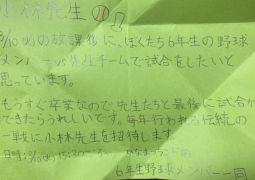 小林先生
3/10(火)の放課後に、ぼくたち6年生の野球
メンバーvs先生チームで試合をしたいと
思っています。
もうすぐ卒業なので、先生たちと最後に試合が
できたらうれしいです。毎年行われる伝統の
一戦に小林先生を招待します。
日時:3/10(火) 15:30
6年生野球メンバー一同